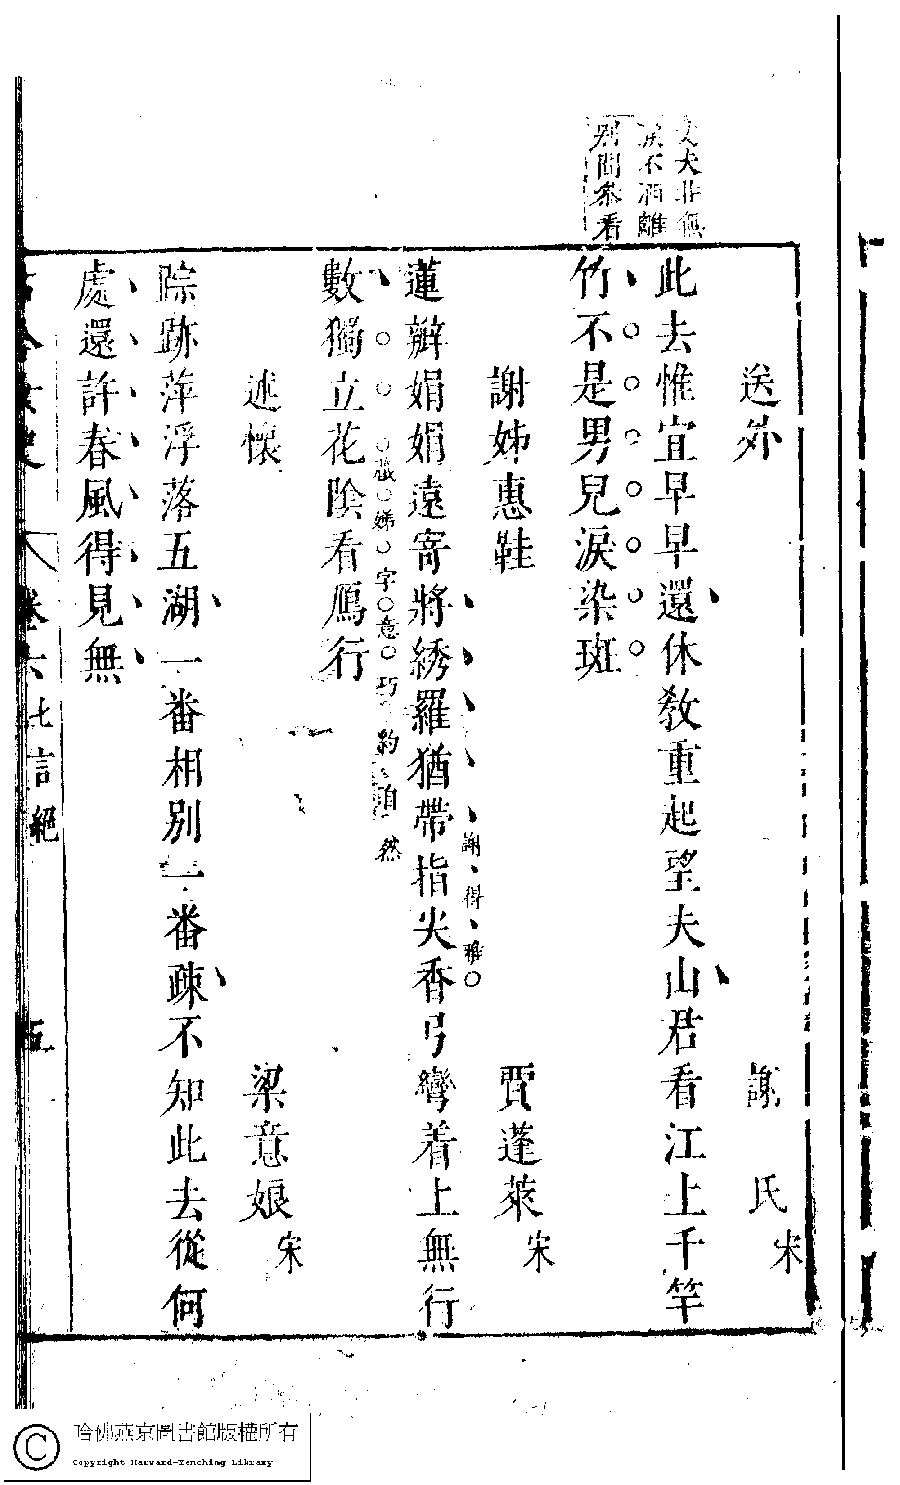 丈夫非無
淚不洒離
別間叅看
送外
謝氏宋
此去惟宜早早還休敎重起望夫山君看江上千竿
竹不是男兒淚染斑
謝姊惠鞋
賈蓬萊宋
謝得雅
蓮瓣娟娟遠寄將綉羅猶帶指尖香弓彎着上無行
數獨立花陰看鴈行
述懷
梁意娘宋
踪跡萍浮落五湖一番相別一番疎不知此去從何
處還許春風得見無
卷六
七言絕
五
哈佛燕京圖書館版權所有
Copyright Harvard-Yenching Library